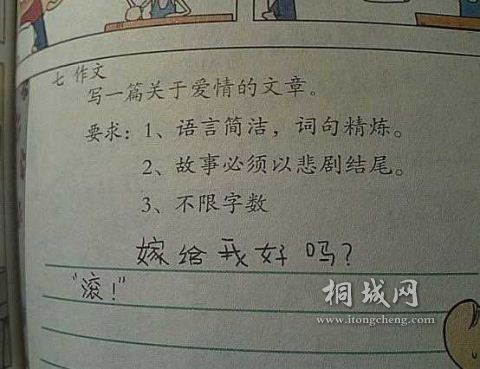 七 作文
写一篇关于爱情的文章。
要求：1、语言简洁，词句精炼。
2、故事必须以悲剧结尾。
3、不限字数
嫁给我好吗？
“滚！”
桐城网
www.itongcheng.com